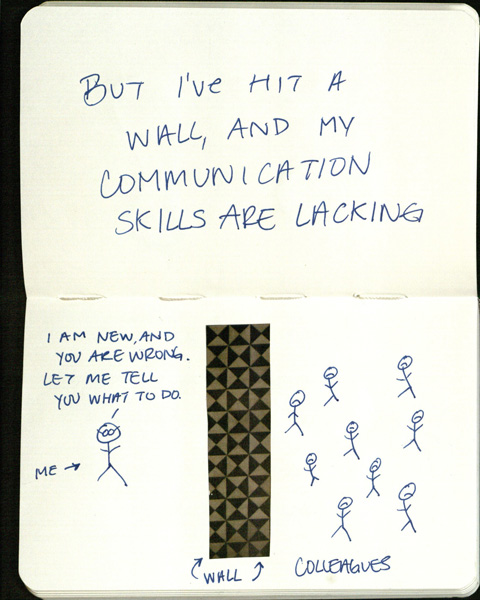 BUT I'VE HIT A
WALL, AND MY
COMMUNICATION
SKILLS ARE LACKING
I AM NEW, AND
YOU ARE WRONG.
LET ME TELL
YOU WHAT TO DO.
ME →
WALL
COLLEAGUES